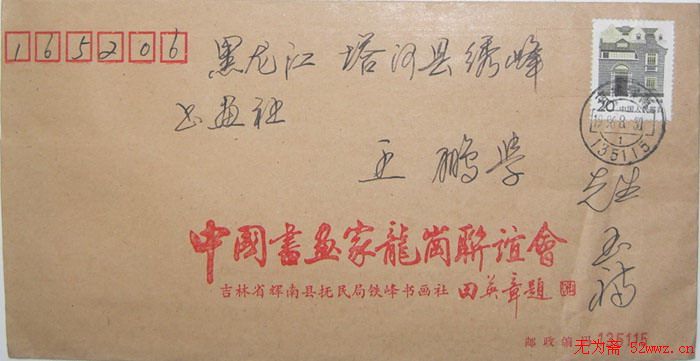 165206
黑龙江 塔河县绣峰
书画社
王 鹏学
先生
玉祯
20
中国人民邮政
1996.8.30
1
135115
中國書画家龍崗聯誼會
吉林省辉南县抚民局铁峰书画社 田英章題
邮政编码 135115
无为斋 52wwz.cn